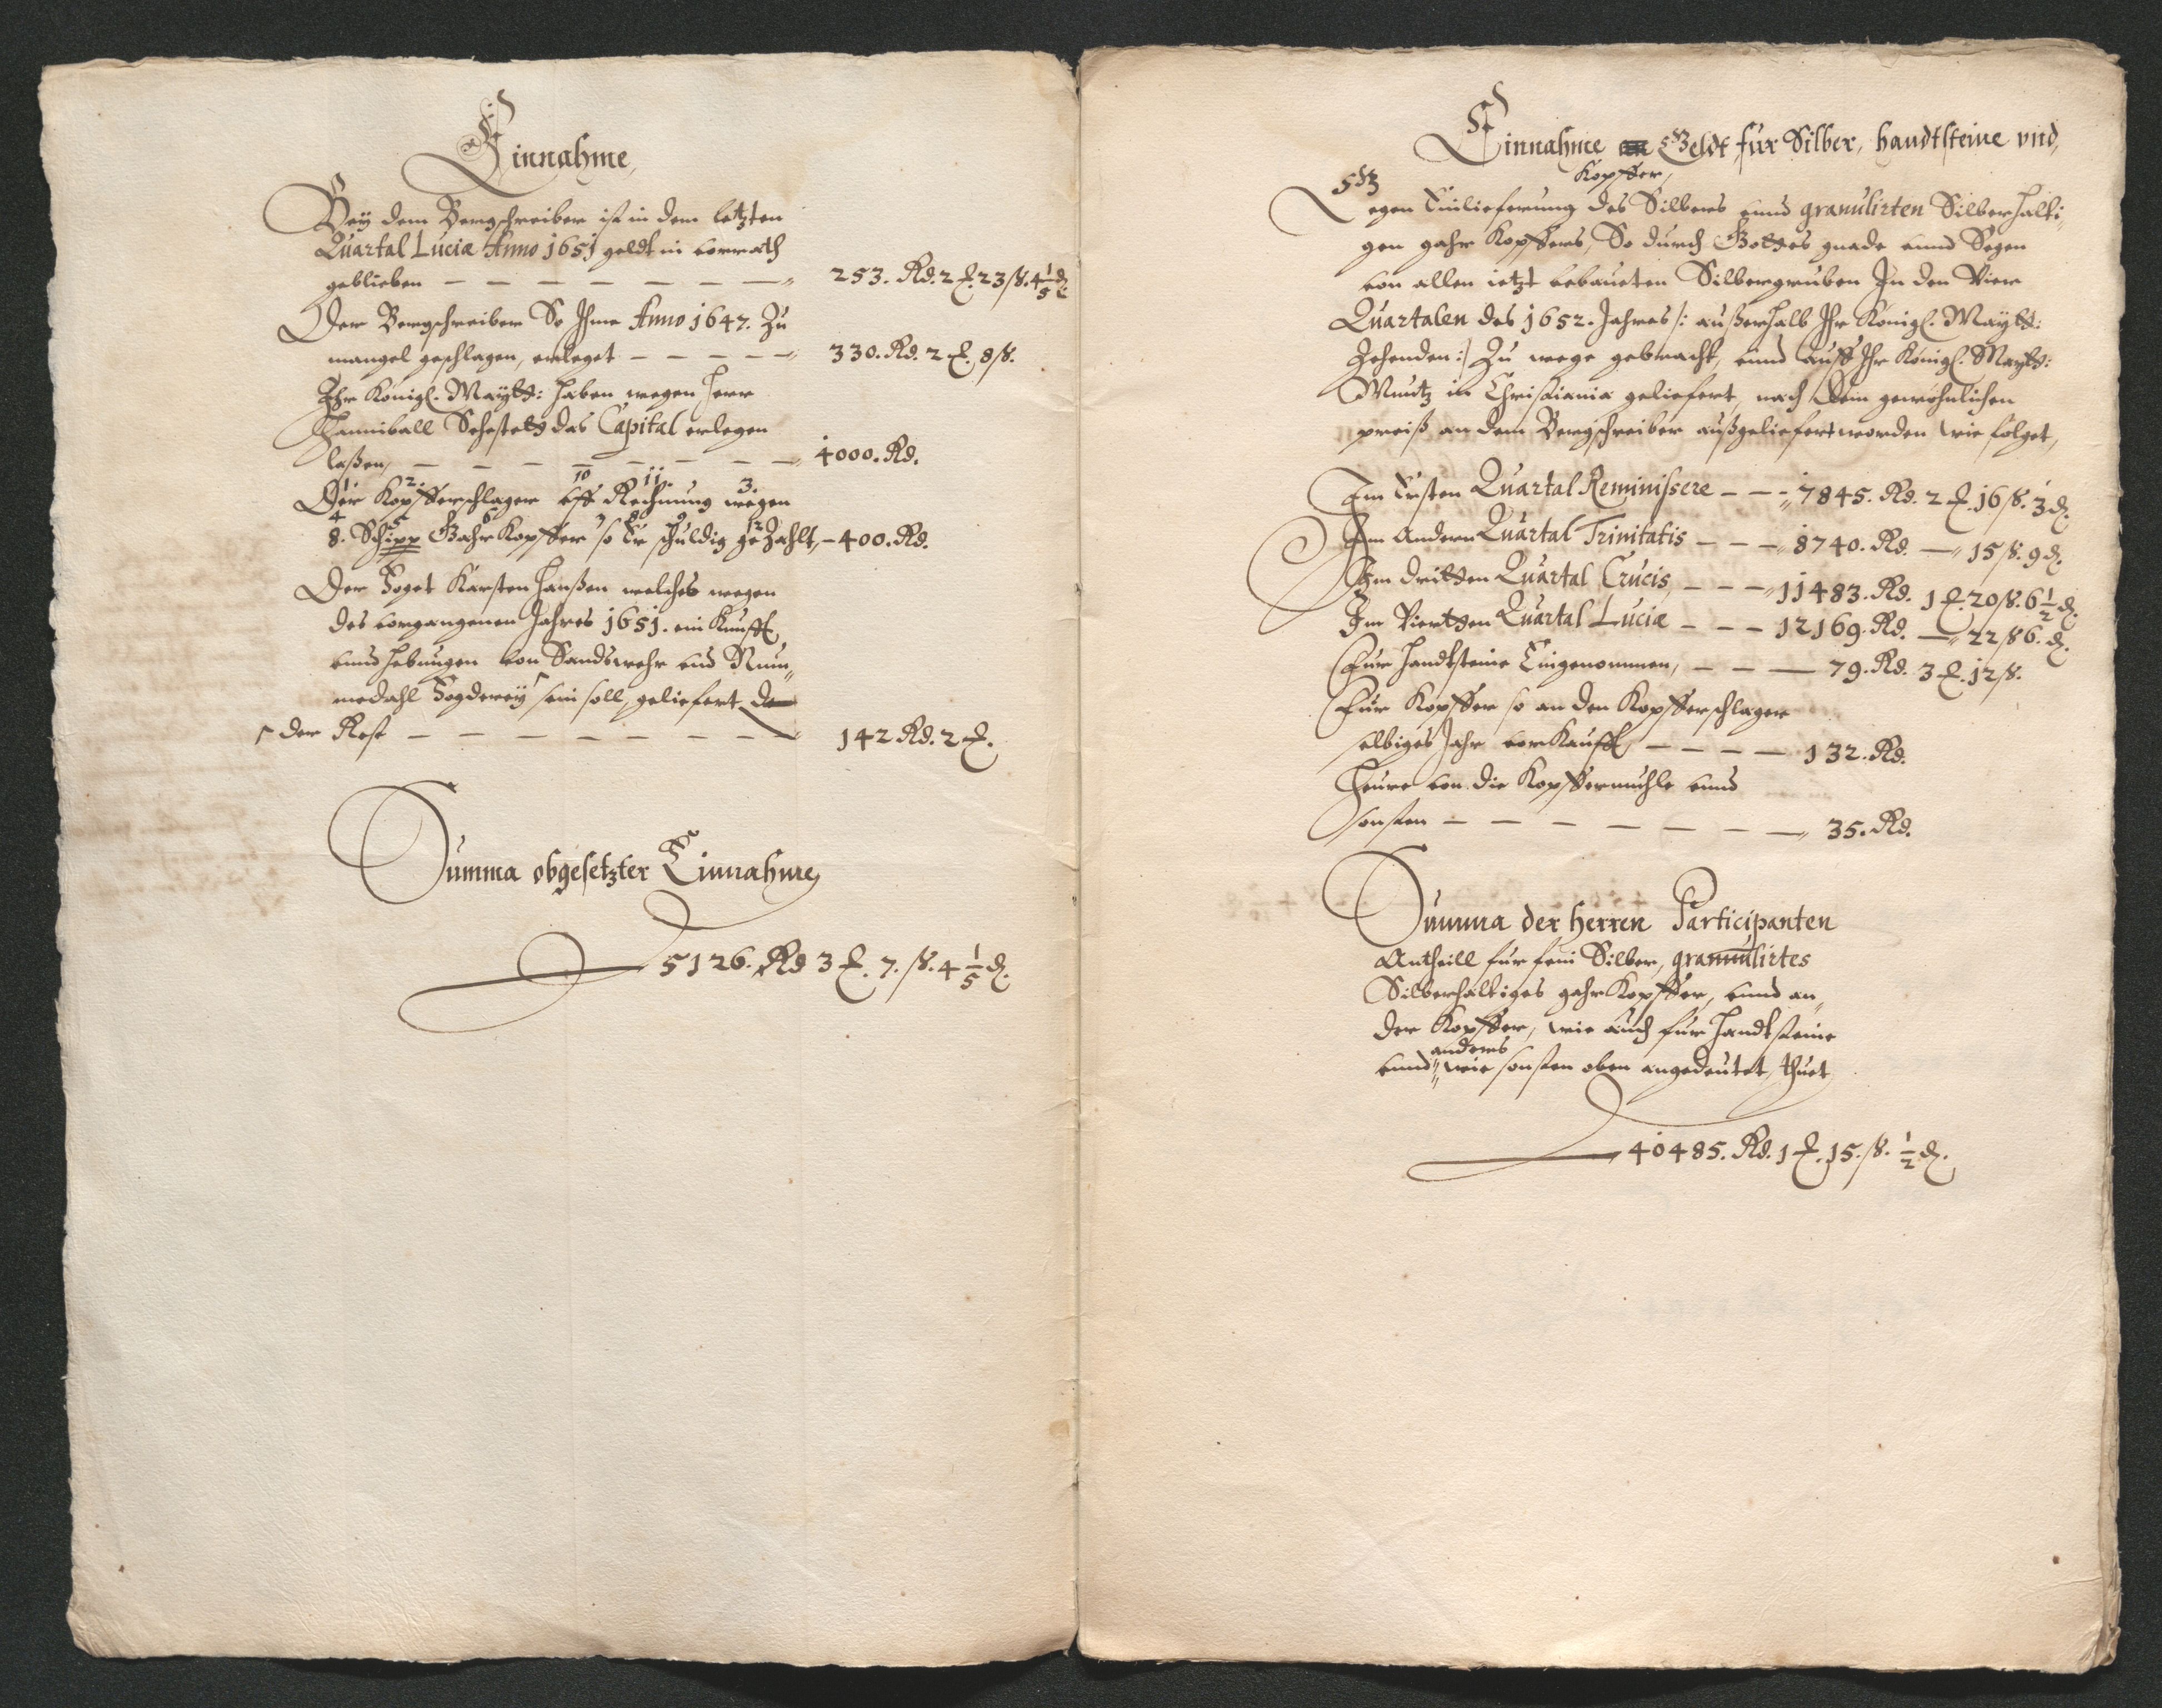 Einnahme,
Bey dem Bergschreiber ist in dem letzten
Quartal Luciæ Anno 1651 geldt in vorrath
geblieben — — — — — — — 253. Rd. 2 ℔. 23 ß. 4 1/5 ₰
Der Bergschreiber So Ihme Anno 1647. Zu
mangel geschlagen, erleget — — — — — 330. Rd. 2 ℔. 8 ß.
Ihr Königl. Maytt: haben wegen Herr
Hanniball Sehestets das Capital erlegen
laßen, — — — — — — — — 4000. Rd.
1. 2. 10 11. 3.
Der Kopfferschlager vff Rechnung wegen
4 5 6 7 8 9 12
8. Schipp Gahr Kopffer so Er schuldig gezahlt, — 400. Rd.
Der Foget Karsten Hanßen welches wegen
des vorgangenen Jahres 1651. ein Kunfft
vnnd hebungen von Sandswehr vnd Num„
medahl Fogderey sein soll, geliefert
der Rest — — — — — — — — 142 Rd. 2 ℔.
Summa obgesetzter Einnahme
5126. Rd 3 ℔. 7. ß. 4 1/5 ₰.
Einnahme Geldt für Silber, handtsteine vnd,
Kopffer,
Gegen Einlieferung des Silbers vnnd granulirten Silberhalti„
gen gahr Kopffers, So durch Gottes gnade vnnd Segen
von allen ietzt bebaueten Silbergruben In den Vier
Quartalen des 1652. Jahres /: außerhalb Ihr Königl. Maytt:
Zehenden :/ Zu wege gebracht, vnnd auff Ihr Königl. Maytt:
Muntz in Christiania geliefert, nach dem gewöhnlichen
preiß an dem Bergschreiber außgeliefert worden wie folget,
Im Ersten Quartal Reminiscere — — — 7845. Rd. 2 ℔. 16 ß. 3 ₰.
Im Andern Quartal Trinitatis — — — 8740. Rd. — 15 ß. 9 ₰.
Im dritten Quartal Crucis, — — — 11483. Rd. 1 ℔. 20 ß. 6 1/2 ₰.
Im Viertten Quartal Luciæ — — — 12169. Rd. — 22 ß 6. ₰.
Für Handtsteine Eingenommen, — — — 79. Rd. 3 ℔. 12 ß.
Für Kopffer so an den Kopfferschlager
selbiges Jahr verkaufft, — — — — 132. Rd.
Heure von die Kopffermuhle vnnd
sonsten — — — — — — — 35. Rd.
Summa der Herren Participanten
Antheill für fein Silber, granulirtes
Silberhaltiges gahr Kopffer, vnnd an„
der Kopffer, wie auch für Handtsteine
anders
vnnd wie sonsten oben angedeutet, thuet
40485. Rd. 1 ℔. 15. ß. 1/2 ₰.